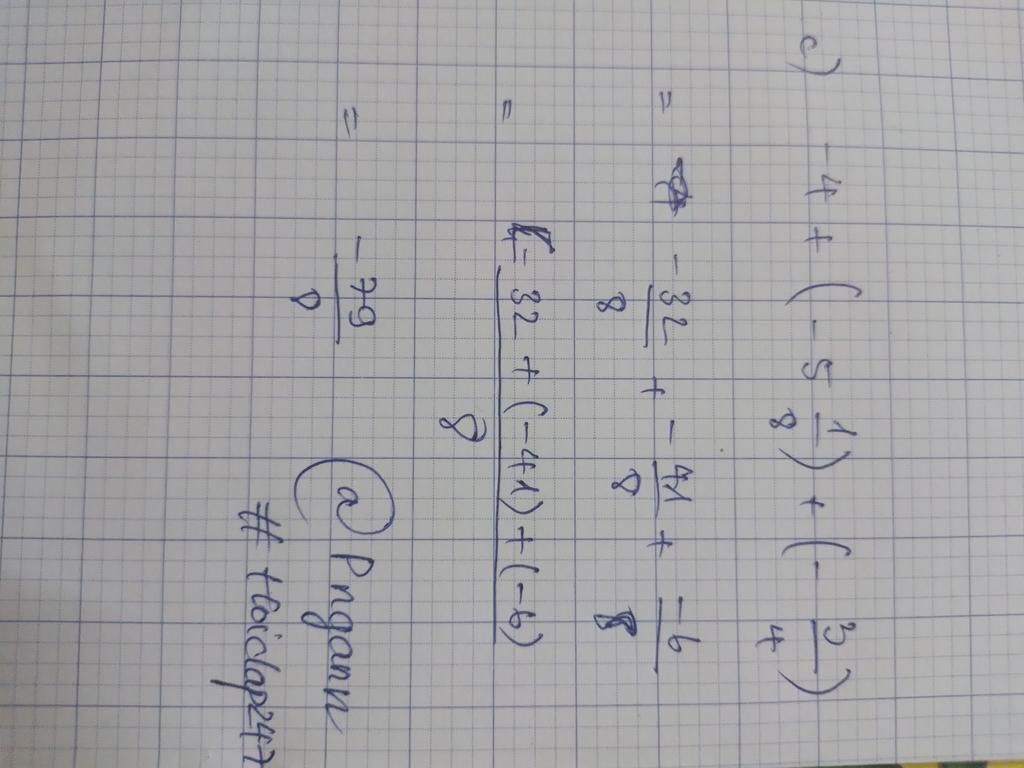 c) -4 + (-5 1/8) + (-3/4)
= -32/8 + -41/8 + -6/8
= -32 + (-41) + (-6) / 8
= -79/8
@ Pngann
# Hoidap247